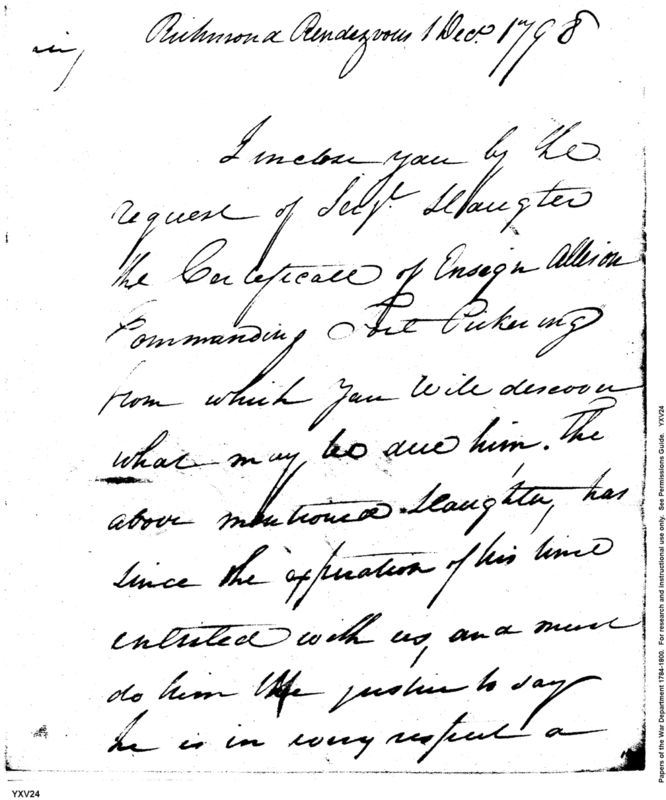 Richmond Rendezvous 1 Decr. 1798
I inclose you by the
request of Serjt. Slaugter
the Certeficate of Ensign Allison
Commanding Fort Pickering
from which you will descover
what may be due him. The
above mentioned Slaughter, has
since the expiration of his time
enlisted with us, and must
do him the justice to say
he is in every respect a
Papers of the War Department 1784-1800. For research and instructional use only. See Permissions Guide. YXV24
YXV24